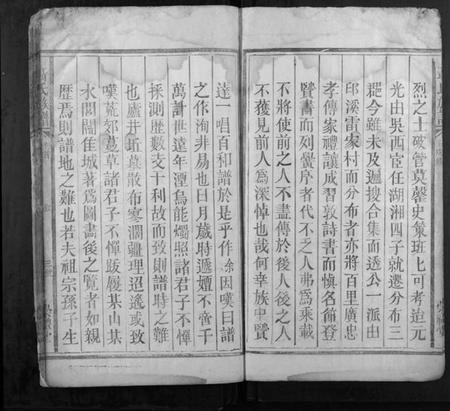 烈之士破管莫罄史策班七可考迨元
光由吳西宦任湖湘四子就遷分布三
楚今雖未及遍搜合集而透公一派由
邱溪雷家村而分布者亦將百里廣忠
孝傳家禮讓成習敦詩書而愼名節登
賢書而列黌序者代不乏人弗爲乘載
不將使前之人不盡傳於後人後之人
不獲見前人爲深悼也哉何幸族中賢
達一唱百和譜於是乎作余因嘆曰譜
之作洵非易也日月歲時遞嬗不啻千
萬計世遠年湮烏能燭照諸君子不憚
採測歷數支十利故而致則譜時之難
也廬井斷墓散布寥濶疆理迢遙或致
嘆荒郊蔓草諸君子不憚跋履某山某
水閎閘佳城著爲圖畵後之覽者如親
歷焉則譜地之難也若夫祖宗孫子生